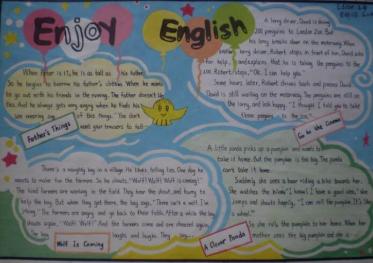 Enjoy English
When Peter is 17, he is as tall as his father.
So he begins to borrow his father's clothes. When he wants
to go out with his friends in the evening. The father doesn't
like. And he always gets very angry when he finds his
son wearing any of his things. "You don't
want your trousers to fall
Father's Things
A lorry driver, David is taking
200 penguins to London Zoo. But
his lorry breaks down on the motorway. When
lorry driver, Robert stops in front of him, David asks
for help, and explains that he is taking the penguins to the
zoo. Robert says, "Ok, I can help you."
Some hours later, Robert drives back and passes David.
David is still waiting on the motorway. The penguins are still on
the lorry, and look happy. "I thought I told you to take
those penguins to the zoo".
Go to the Cinema
There's a naughty boy in a village. He likes telling lies. One day he
wants to make fun the farmers. So he shouts, "Wolf! Wolf! Wolf is coming!"
The kind farmers are working in the field. They hear the shout, and hurry to
help the boy. But when they get there, the boy says, "There isn't a wolf. I'm
joking." The farmers are angry and go back to their fields. After a while the boy
shouts again, "Wolf! Wolf!" And the farmers come and are cheated again.
The boy laughs and laughs. They
Wolf Is Coming
A little panda picks up a pumpkin and wants to
take it home. But the pumpkin is too big. The panda
can't take it home.
Suddenly she sees a bear riding a bike towards her.
She watches the bike. "I know! I have a good idea." she
jumps and shouts happily, "I can roll the pumpkin. It's like
a wheel."
So she rolls the pumpkin to her home. When her
mother sees the big pumpkin and she is
A Clever Panda